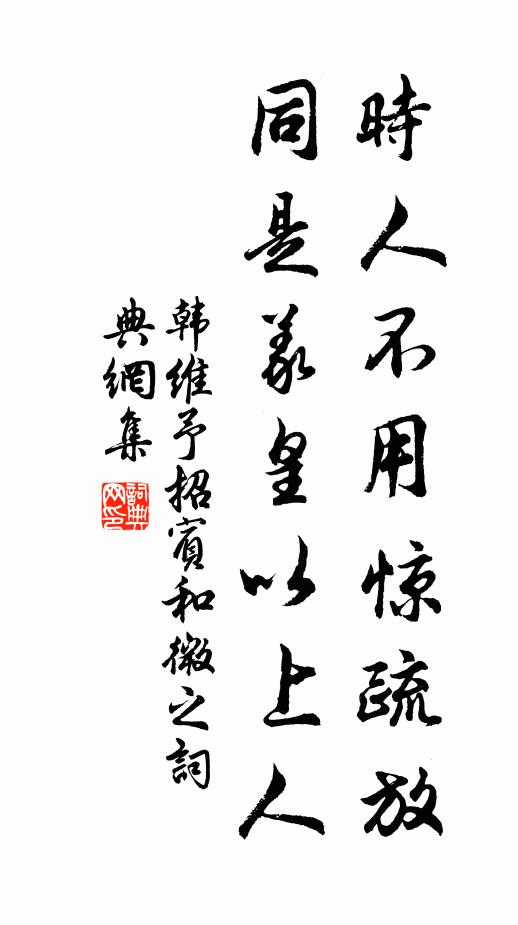 時人不用惊疏放
同是羲皇以上人
韩維予招賓和微之詞
典網集
詞典网印